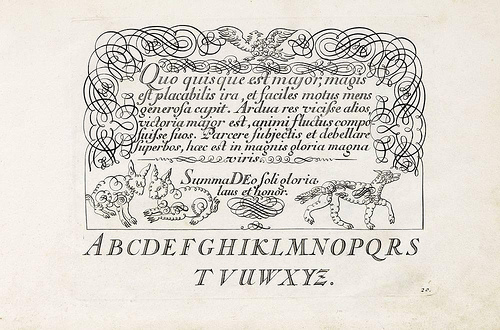 Quo quisque est major, magis
est placabilis ira, et faciles motus mens
generosa capit. Ardua res vicisse alios,
victoria major est, animi fluctus compo
suisse suos. Parcere subjectis et debellare
superbos, hæc est in magnis gloria magna
viris.
Summa DEo soli gloria
laus et honor.
ABCDEFGHIKLMNOPQRS
TVUWXYZ.
20.